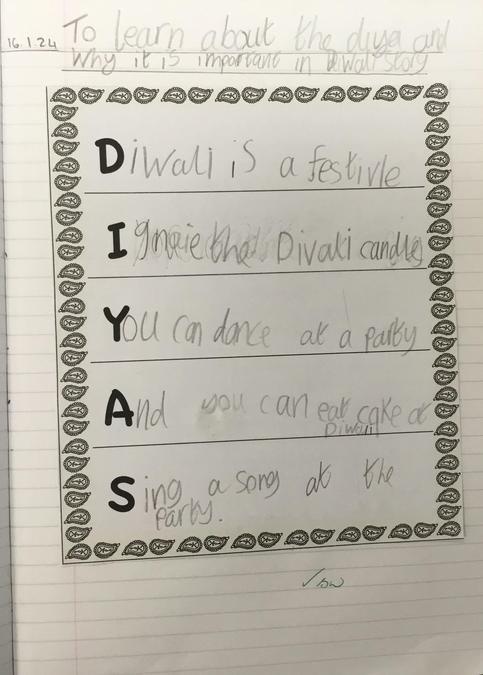 16.1.24 To learn about the diya and
why it is important in Diwali story
Diwali is a festivle
Ignaie the Divali candles
You can dance at a party
And you can eat cake at
Diwali
Sing a song at the
party.